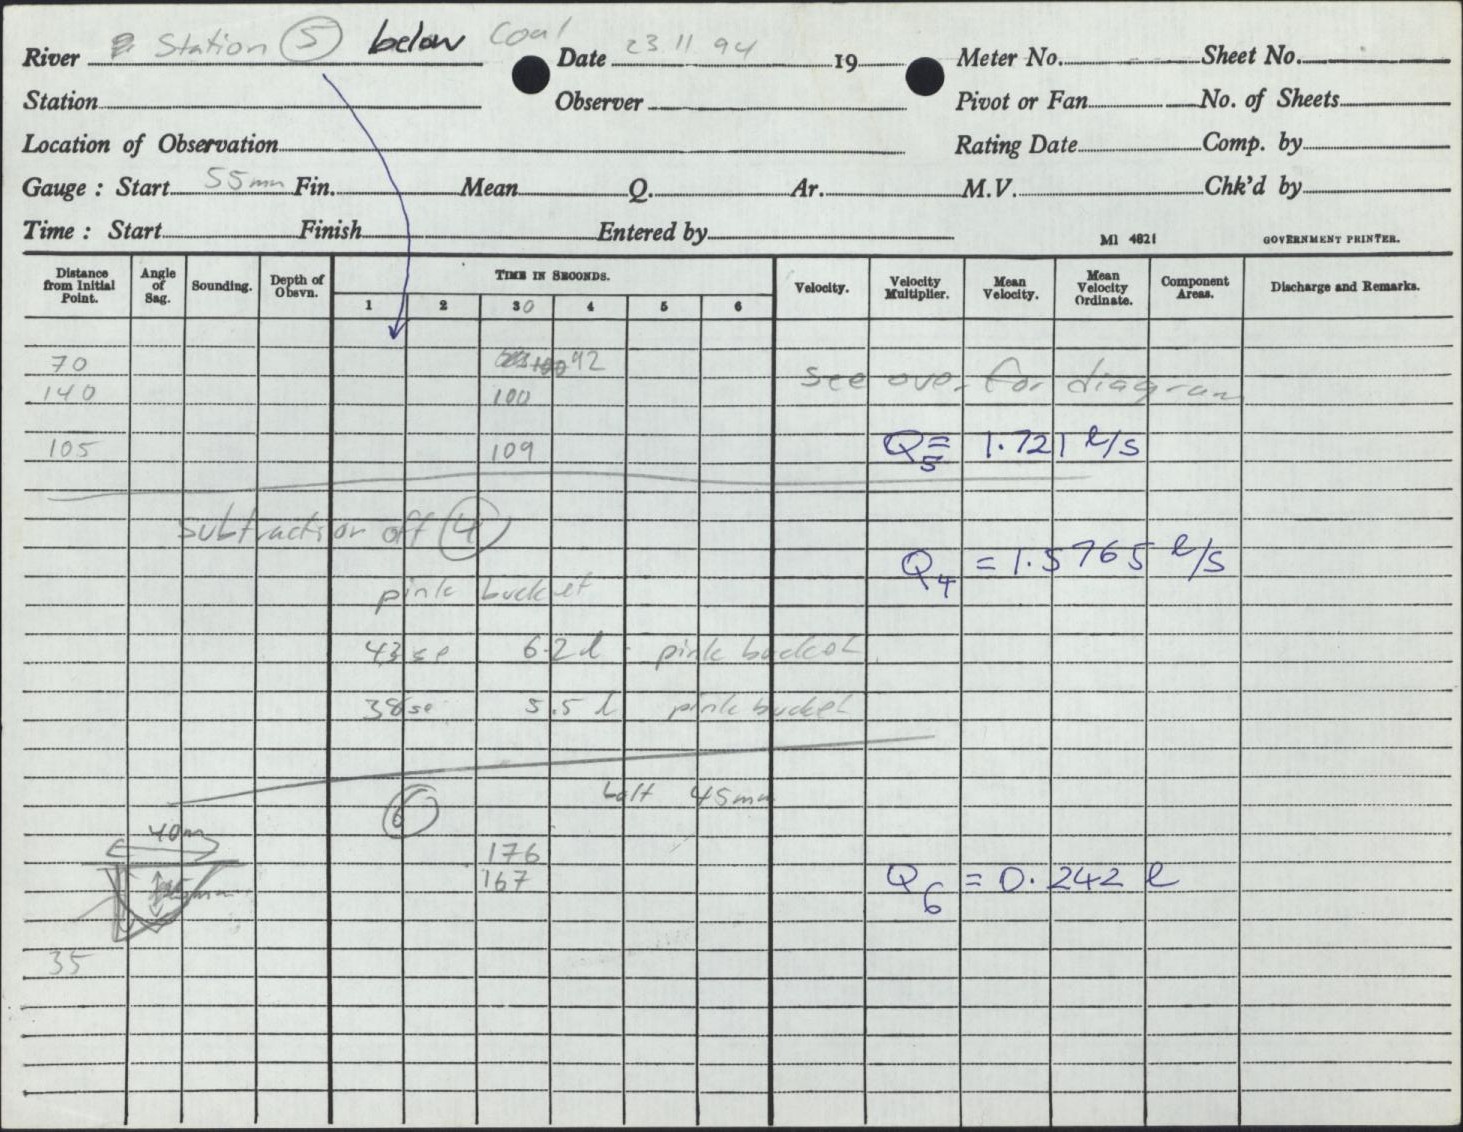 River Station 5 below Coal Date 23 11 94 19 Meter No. Sheet No.
Station Observer Pivot or Fan No. of Sheets
Location of Observation Rating Date Comp. by
Gauge : Start 55mm Fin. Mean Q. Ar. M.V. Chk'd by
Time : Start Finish Entered by
M1 4821 GOVERNMENT PRINTER.
Distance from Initial Point. Angle of Sag. Sounding. Depth of Obsvn. TIME IN SECONDS. Velocity. Velocity Multiplier. Mean Velocity. Mean Velocity Ordinate. Component Areas. Discharge and Remarks.
1 2 30 4 5 6
70 92
see over for diagram
140 100
105 109 Q5 = 1.721 l/s
subtraction off 4
Q4 = 1.5765 l/s
pink bucket
43 se 6.2 l pink bucket
38 se 5.5 l pink bucket
6 45mm
40m
176
167 Q6 = 0.242 l
35